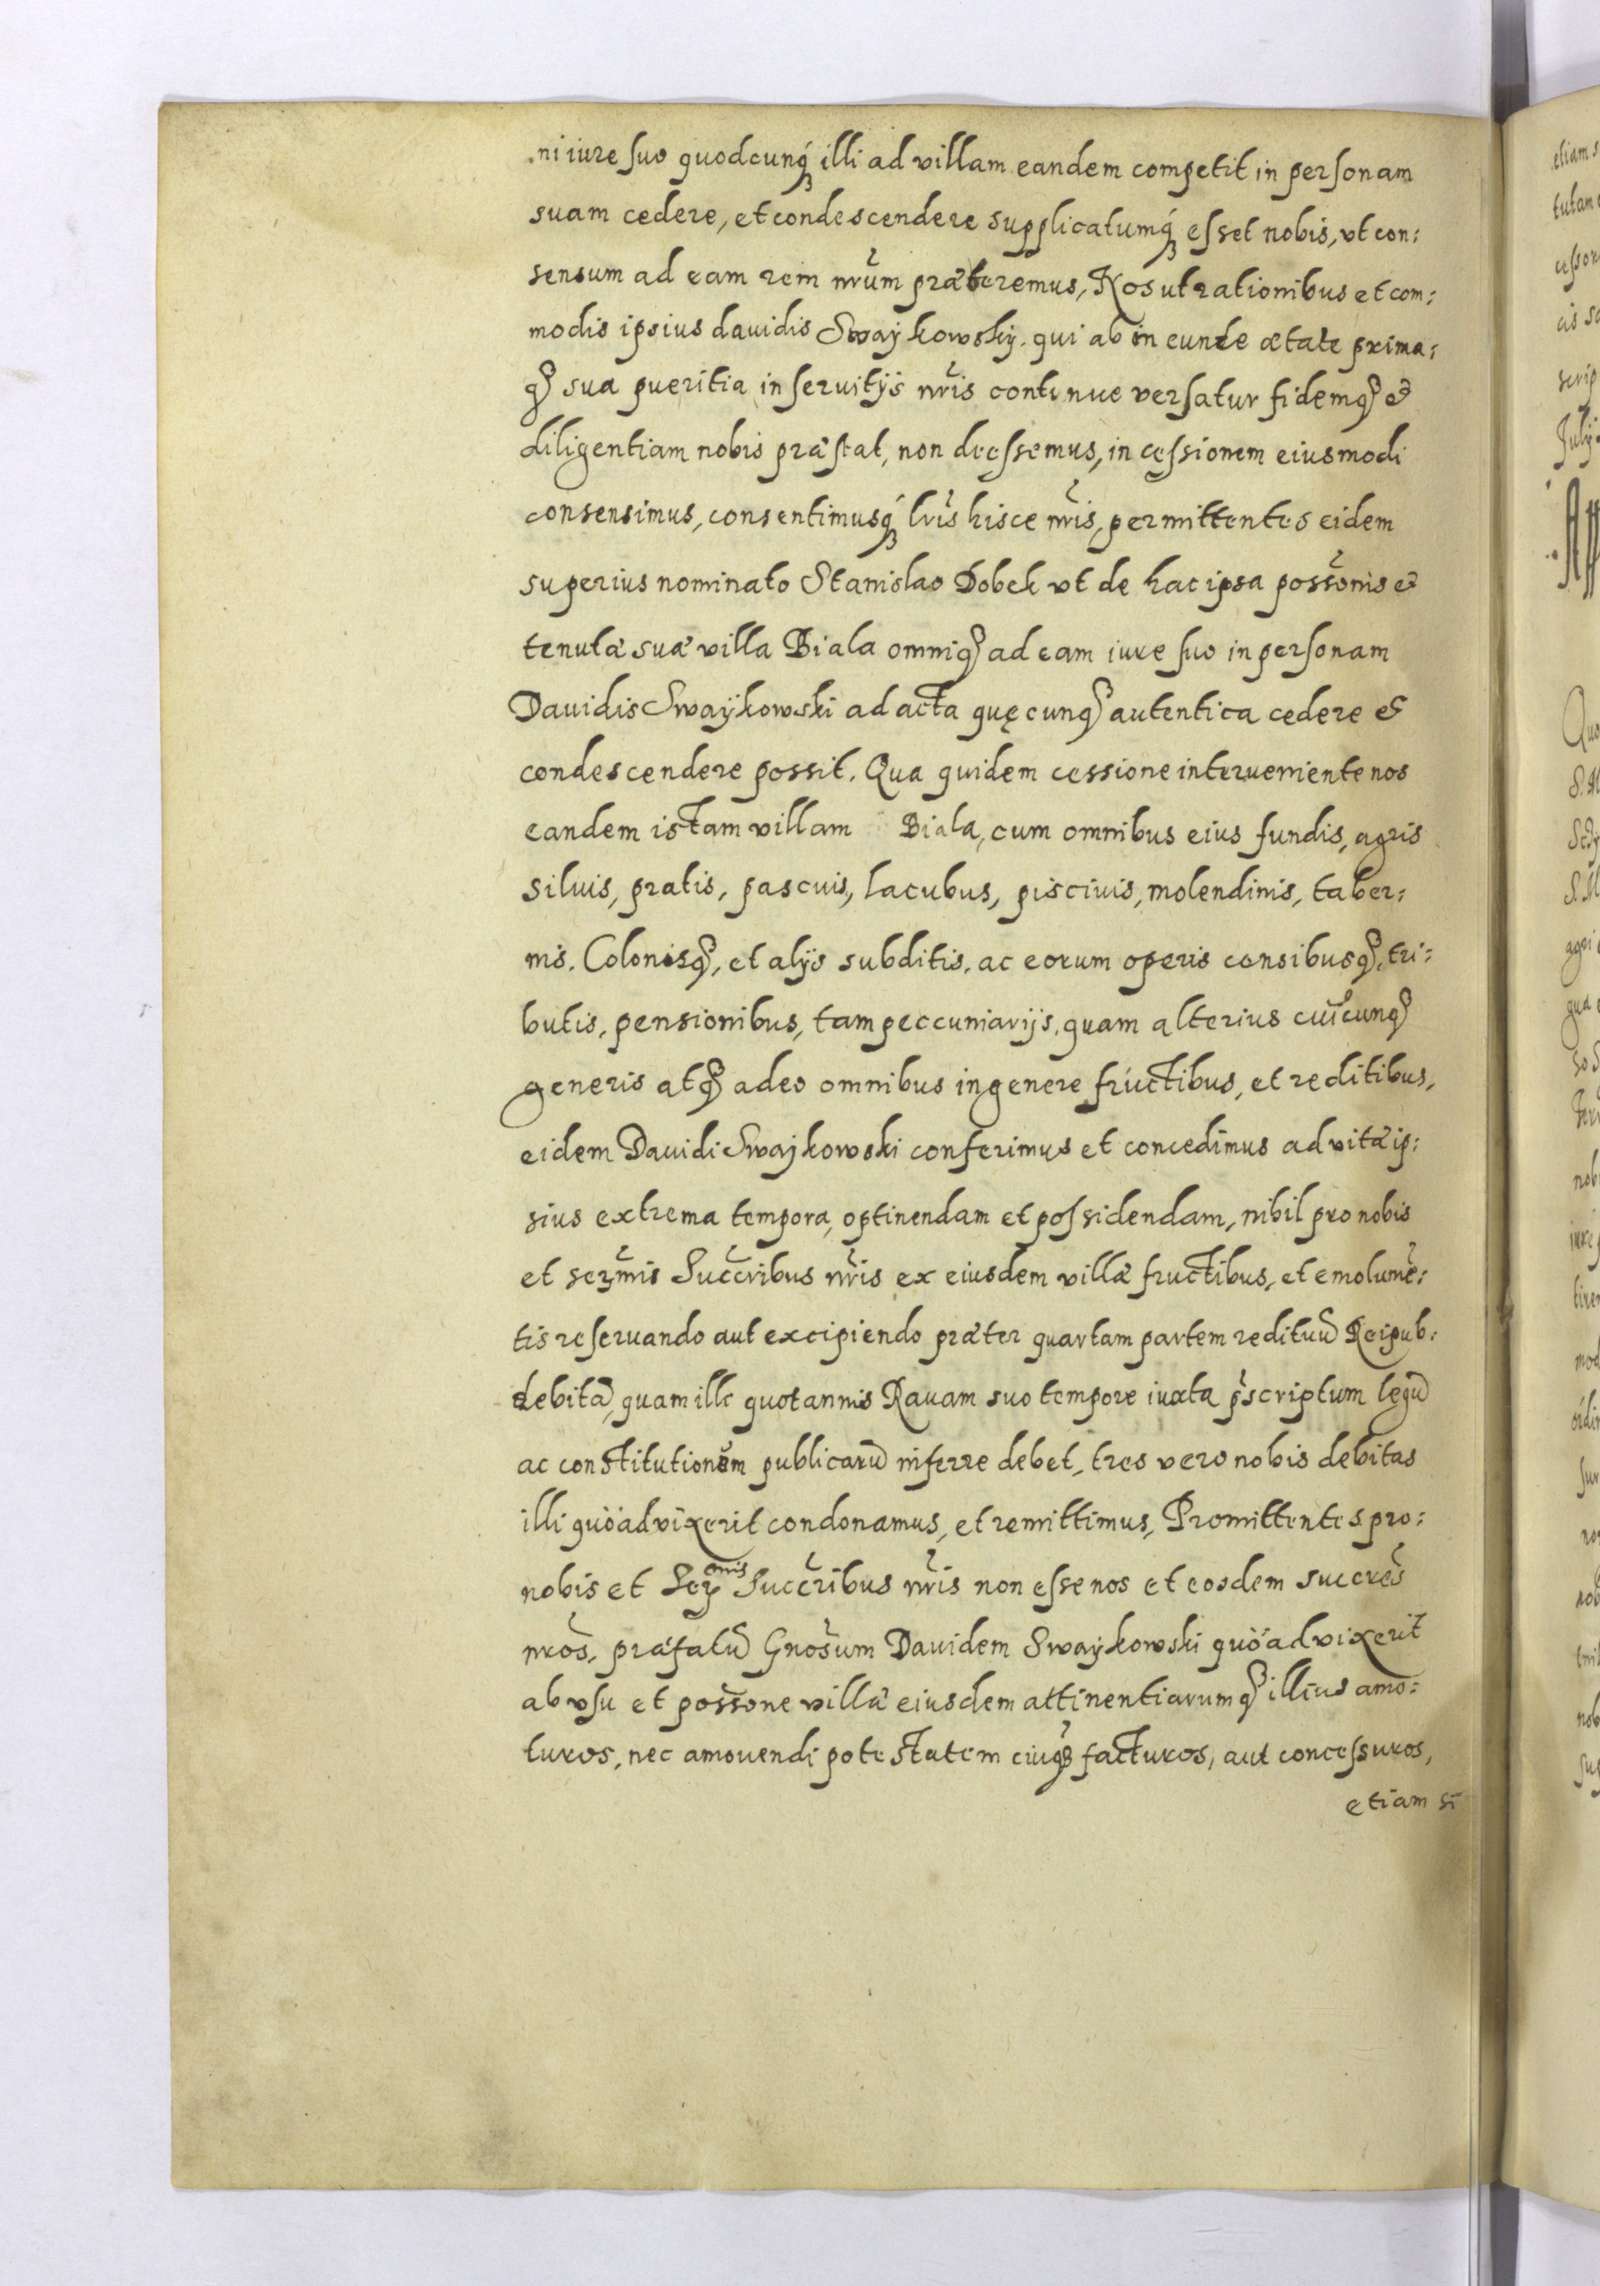 ni iure suo quodcunq́ꝫ illi ad villam eandem competit in personam
suam cedere, et condescendere supplicatumq́ꝫ esset nobis, vt con:
sensum ad eam rem nr̃um præberemus, Nos ut rationibus et com:
modis ipsius dauidis Swaÿkowskÿ. qui ab in eunde ætate prima:
qꝫ sua pueritia in seruitÿs nr̃is continue versatur fidemqꝫ et
diligentiam nobis præstat, non deessemus, in cessionem eiusmodi
consensimus, consentimusq́ꝫ lr̃is hisce nr̃is, permittentes eidem
superius nominato Stanislao Dobek vt de hac ipsa possõnis et
tenutæ suæ villa Biala omniqꝫ ad eam iure suo in personam
Dauidis Swaÿkowski ad acta quęcunqꝫ autentica cedere et
condescendere possit. Qua quidem cessione interueniente nos
eandem istam villam Biala, cum omnibus eius fundis, agris
siluis, pratis, pascuis, lacubus, piscinis, molendinis, taber:
nis. Colonisqꝫ, et alÿs subditis. ac eorum operis censibusqꝫ, tri:
butis, pensionibus, tam peccuniarÿs, quam alterius cuicunqꝫ
generis atqꝫ adeo omnibus in genere frúctibus, et reditibus,
eidem Dauidi Swaÿkowski conferimus et concedimus ad vitæ ip:
sius extrema tempora, optinendam et possidendam, nihil pro nobis
et serm̃is Succr̃ibus nr̃is ex eiusdem villæ fructibus, et emolumẽ:
tis reseruando aut excipiendo præter quartam partem redituũ Reipub:
debitã, quam ille quotannis Rauam suo tempore iuxta p̃scriptum legũ
ac constitutionem publicarũ inferre debet, tres vero nobis debitas
illi quöad vixerit condonamus, et remittimus, Promittentes pro:
nobis et Serꝫmis Succr̃ibus nr̃is non esse nos et eosdem succrẽs
nr̃os, præfatũ Gnõsum Dauidem Swaÿkowski quöad vixerit
ab vsu et possõne villæ eiusdem attinentiarumqꝫ illius amo:
turos, nec amouendi potestatem cuiqꝫ facturos, aut concessuros,
etiam si